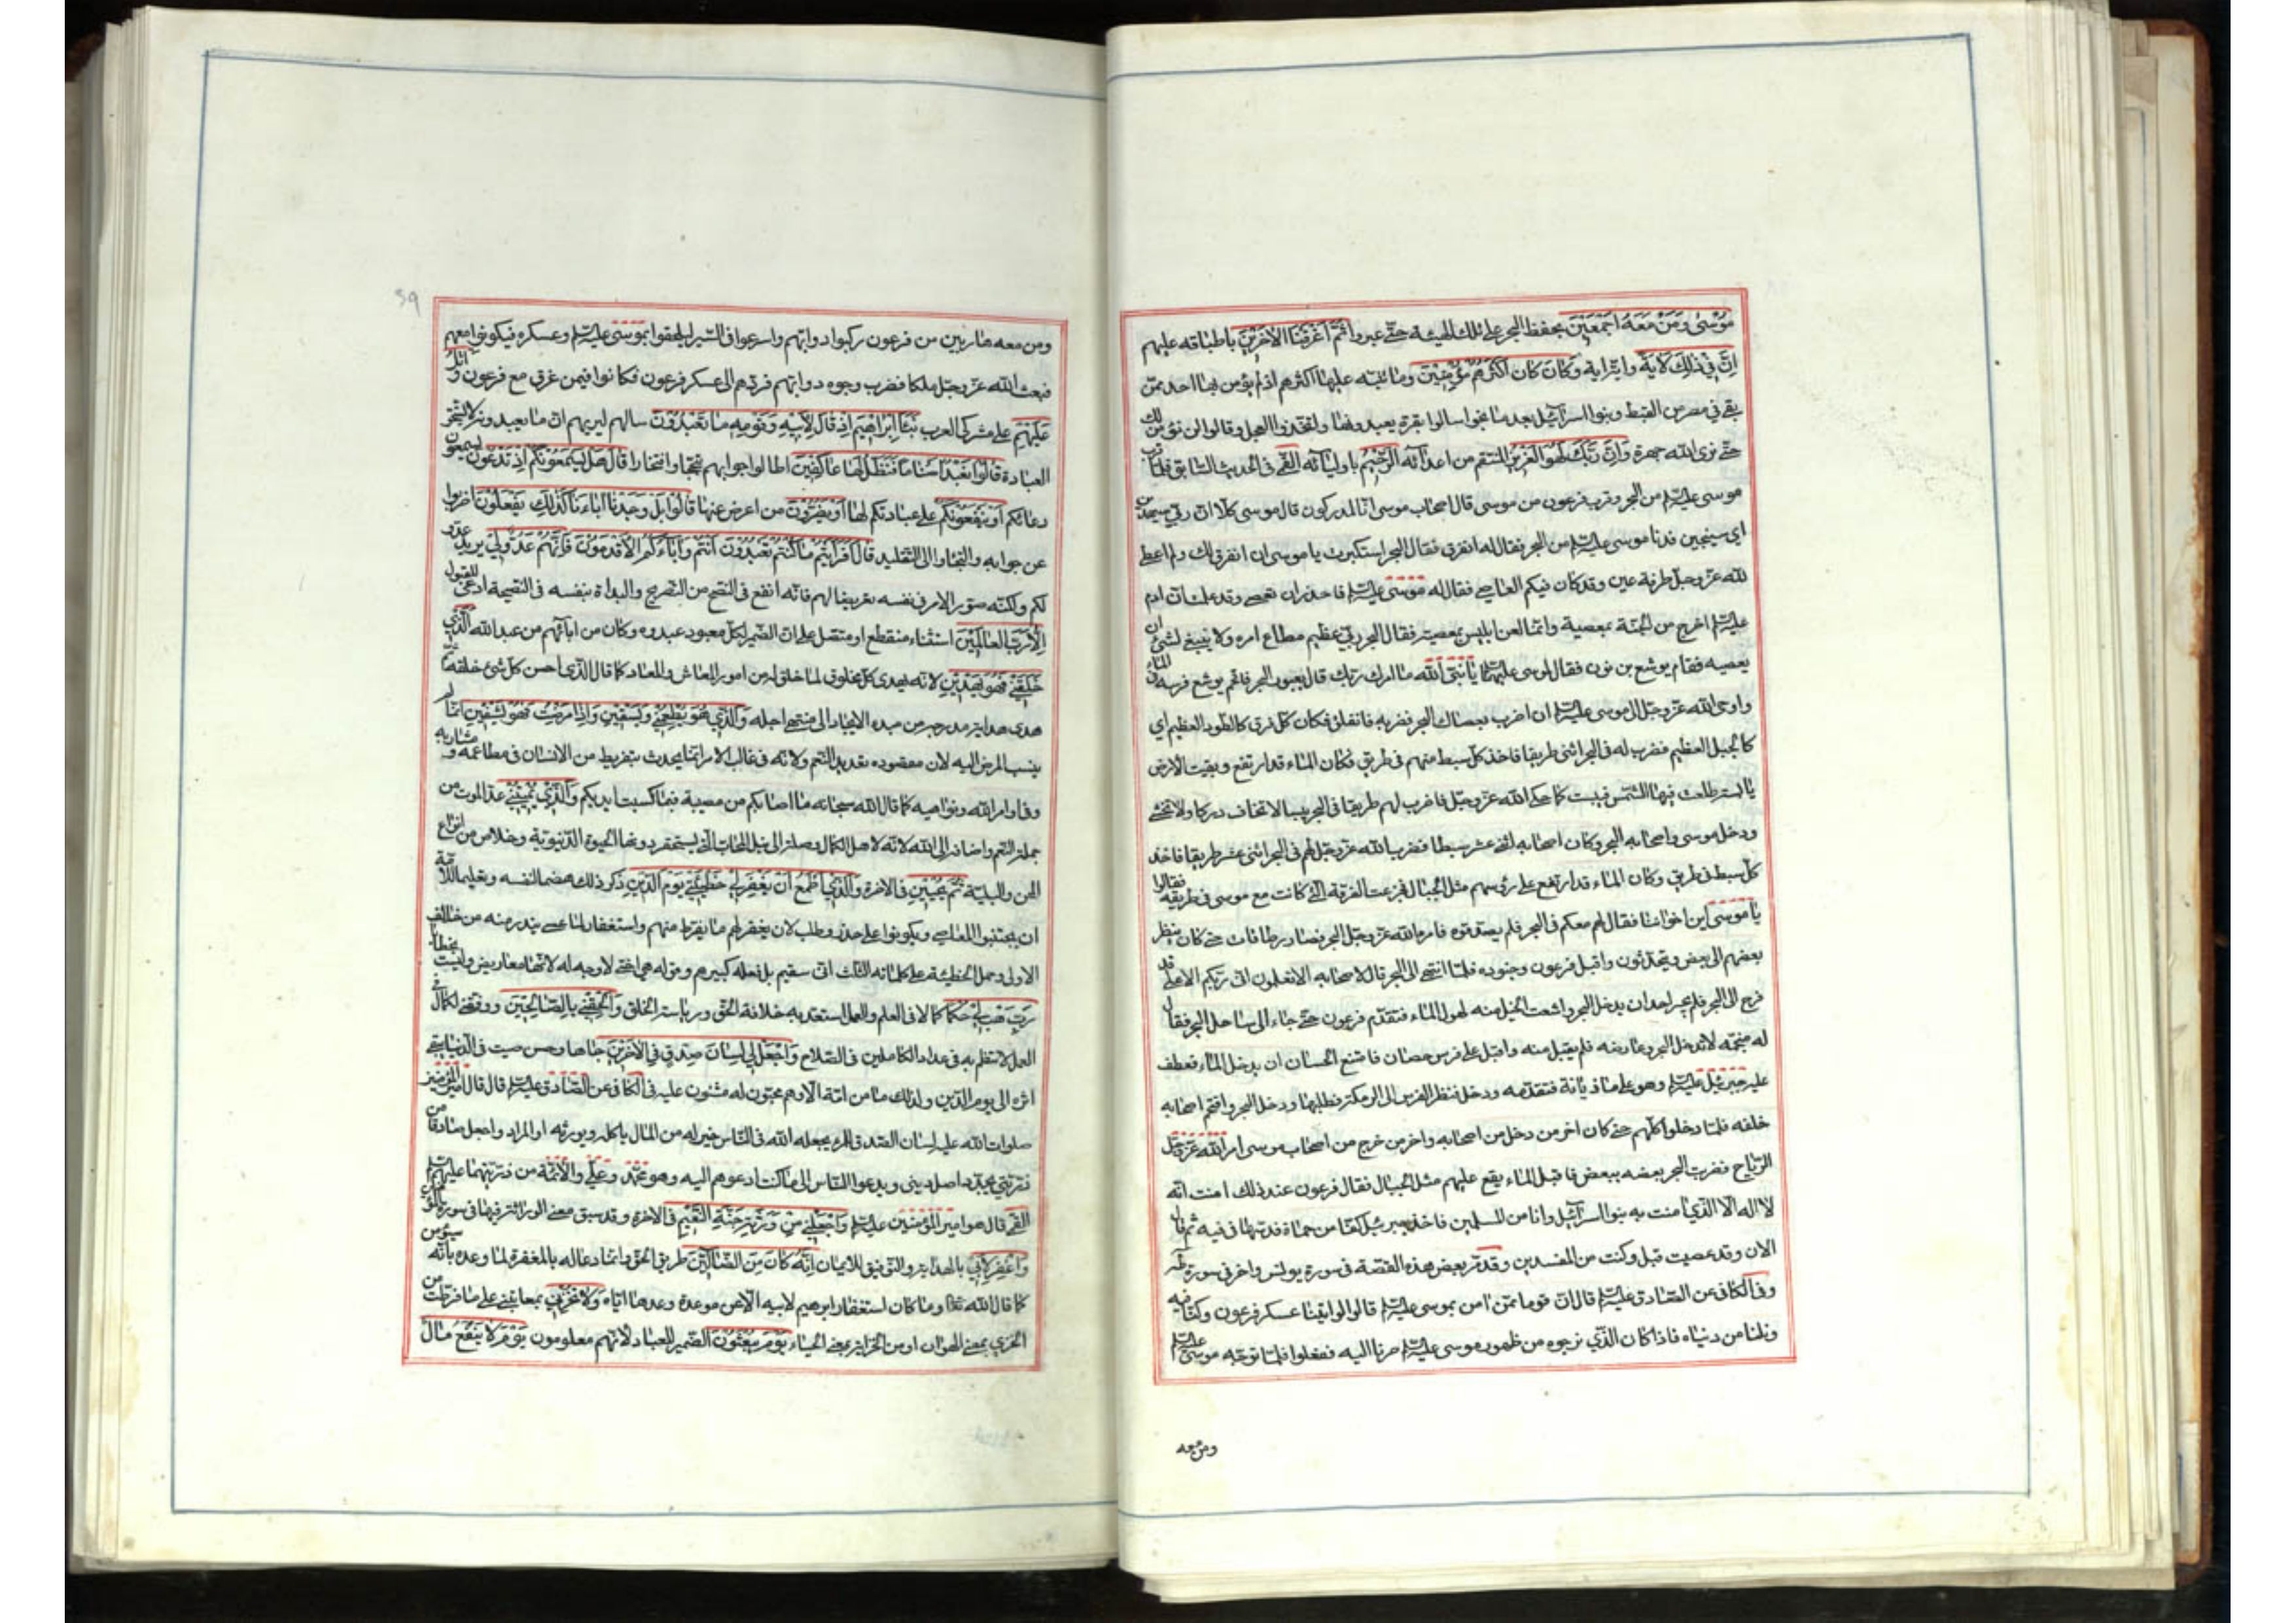 موُسٰى وَمَنْ مَعَهُ اَجْمَعَيِنَ بحفظ البحر على تلك الهيئة حتّى عبروا ثُمَّ اَغْرَقْنَا الْاٰخَرْينَ باطباقه عليهم
اِنَّ فِى ذٰلِكَ لَاٰيَةً واية اية وَمٰا كانَ اَكْثَرُهُمْ مُؤْمِنيِنَ وما تنبّه عليها اكثرهم اذ لم يؤمن بها احد ممّن
بقى في مصر من القبط وبنوا اسرائيل بعد ما نجوا سالوا بقرة يعبدونها واتّخذوا العجل وقالوا لن نؤمن لك
حتّى نرى الله جهرة وَاِنَّ رَبَّكَ لَهُوَ الْعَزيزُ المنتقم من اعدائه الرَّحْيُم باوليائه القمّى في الحديث السّابق فلمّا قرب
موسى عليه السّلم من البحر وقرب فرعون من موسى قال اصحاب موسى انّا لمدركون قال موسى كلّا انّ ربّي سيهدين
اى سينجين فدنا موسى عليه السّلم من البحر فقال له انفرق فقال البحر استكبرت يا موسى ان انفرق لك ولم اعط
لله عزّ وجلّ طرفة عين وقد كان فيكم العاصى فقال له موسى عليه السّلم فاحذر ان تعصى وقد علمت انّ ادم
عليه السّلم اخرج من الجنّة بمعصية وانّما لعن ابليس بمعصيته فقال البحر ربّي عظيم مطاع امره ولا ينبغى لشئ ان
يعصيه فقام يوشع بن نون فقال لموسى عليهما يا نبىّ الله ما امرك ربّك قال بعبور البحر فاقحم يوشع فرسه الماء
واوحى الله عزّ وجلّ الى موسى عليه السّلم ان اضرب بعصاك البحر فضربه فانفلق فكان كلّ فرق كالطّود العظيم اى
كالجبل العظيم فضرب له في البحر اثنى طريقا فاخذ كلّ سبط منهم في طريق فكان الماء قد ارتفع وبقيت الارض
يابسة طلعت فيها الشّمس فيبست كما حكى الله عزّ وجلّ فاضرب لهم طريقا في البحر يبسا لا تخاف دركا ولا تخشى
ودخل موسى واصحابه البحر وكان اصحابه اثنى عشر سبطا فضرب الله عزّ وجلّ لهم في البحر اثنى عشر طريقا فاخذ
كلّ سبط في طريق وكان الماء قد ارتفع على رؤسهم مثل الجبال فجزعت الفرقة الّتى كانت مع موسى في طريقه فقالوا
يا موسى اين اخواننا فقال لهم معكم في البحر فلم يصدّقوه فامر الله عزّ وجلّ البحر فصار طاقات حتّى كان ينظر
بعضهم الى بعض ويتحدّثون واقبل فرعون وجنوده فلمّا انتهى الى البحر قال لاصحابه الا تعلمون انّى ربّكم الاعلى قد
فرج الى البحر فلم يجسر احد ان يدخل البحر وامتنعت الخيل منه لهول الماء فتقدّم فرعون حتّى جاء الى ساحل البحر فقال
له منجّمه لا تدخل البحر وعارضه فلم يقبل منه واقبل على فرس حصان فامتنع الحصان ان يدخل الماء فعطف
عليه جبرئيل عليه السّلم وهو على ماذيانة فتقدّمه ودخل فنظر الفرس الى الرمكة فطلبها ودخل البحر واقتحم اصحابه
خلفه فلمّا دخلوا كلّهم حتّى كان اخر من دخل من اصحابه واخر من خرج من اصحاب موسى امر الله عزّ وجلّ
الرّياح فضربت البحر بعضه ببعض فاقبل الماء يقع عليهم مثل الجبال فقال فرعون عند ذلك امنت انّه
لا اله الّا الّذي امنت به بنوا اسرائيل وانا من المسلمين فاخذ جبرئيل كفّا من حماة فدسّها في فيه ثم قال
الان وقد عصيت قبل وكنت من المفسدين وقد مرّ بعض هذه القصّة في سورة يونس واخر في سورة طه
وفي الكافي عن الصّادق عليه السّلم قال انّ قوما ممّن امن بموسى عليه السّلم قالوا لو اتينا عسكر فرعون وكنّا فيه
ونلنا من دنياه فاذا كان الّذي نرجوه من ظهور موسى عليه السّلم صرنا اليه ففعلوا فلمّا توجّه موسى عليه السّلم
ومن معه
59
ومن معه هاربين من فرعون ركبوا دوابّهم واسرعوا في السّير ليلحقوا بموسى عليه السّلم وعسكره فيكونوا معهم
فبعث الله عزّ وجلّ ملكا فضرب وجوه دوابّهم فردّهم الى عسكر فرعون فكانوا فيمن غرق مع فرعون وَ اتْلُ
عَلَيْهِمْ على مشركى العرب نَبَأَ اِبْرٰاهيٖمَ اِذْ قٰالَ لِاَبيٖهِ وَقَوْمِهِ مٰا تَعْبُدُونَ سالهم ليريهم انّ ما يعبدونه لا يستحقّ
العبادة قٰالُوا نَعْبُدُ اَصْنٰامًا فَنَظَلُّ لَهٰا عٰاكِفيٖنَ اطالوا جوابهم تبجّحا وافتخارا قٰالَ هَلْ يَسْمَعُونَكُمْ اِذْ تَدْعُونَ يسمعون
دعائكم اَوْ يَنْفَعُونَكُمْ على عبادتكم لها اَوْ يَضُرُّونَ من اعرض عنها قٰالُوا بَلْ وَجَدْنٰا اٰبٰاءَنٰا كَذٰلِكَ يَفْعَلُونَ اضربوا
عن جوابه والتجئوا الى التّقليد قٰالَ اَفَرَاَيْتُمْ مٰا كُنْتُمْ تَعْبُدُونَ اَنْتُمْ وَاٰبٰاؤُكُمُ الْاَقْدَمُونَ فَاِنَّهُمْ عَدُوٌّ ليٖ يريد عدوّ
لكم ولكنّه صوّر الامر في نفسه تعريضا لهم فانّه انفع في النّصح من التّصريح والبداة بنفسه في النّصيحة ادعى للقبول
اِلّٰا رَبَّ الْعٰالَميٖنَ استثناء منقطع او متّصل على انّ الضّمير لكلّ معبود عبدوه وكان من ابائهم من عبد الله اَلَّذيٖ
خَلَقَنيٖ فَهُوَ يَهْديٖنِ لانّه يهدى كلّ مخلوق لما خلق له من امور المعاش والمعاد كما قال الّذى احسن كلّ شئ خلقه ثمّ
هدى هداية مدرجة من مبدء الايجاد الى منتهى اجله وَالَّذيٖ هُوَ يُطْعِمُنيٖ وَيَسْقيٖنِ وَاِذٰا مَرِضْتُ فَهُوَ يَشْفيٖنِ انّما لم
ينسب المرض اليه لان مقصوده تعديد النّعم ولانّه في غالب الامر انّما يحدث بتفريط من الانسان في مطاعمه و مشاربه
وفي اوامر الله ونواهيه كما قال الله سبحانه ما اصابكم من مصيبة فبما كسبت ايديكم وَالَّذيٖ يُميٖتُنيٖ عدّ الموت من
جملة النّعم واضافه الى الله لانّه لاهل الكمال وصلة الى نيل المحابّ الّتى يستحقر دونها الحيوة الدّنيويّة وخلاص من انواع
المحن والبليّة ثُمَّ يُحْييٖنِ في الاخرة وَالَّذيٖ اَطْمَعُ اَنْ يَغْفِرَ ليٖ خَطيٖئَتيٖ يَوْمَ الدّيٖنِ ذكر ذلك هضما لنفسه وتعليما للامّة
ان يجتنبوا المعاصى ويكونوا على حذر وطلب لان يغفر لهم ما يفرط منهم واستغفار لما عسى يندر منه من خلاف
الاولى وحمل الخطيئة على كلماته الثّلث انّى سقيم بل فعله كبيرهم وقوله هى اختى لا وجه له لانّها معاريض وليست بخطايا
رَبِّ هَبْ ليٖ حُكْمًا كمالا في العلم والعمل استعدّ به خلافة الحقّ ورياسة الخلق وَاَلْحِقْنيٖ بِالصّٰالِحيٖنَ ووفّقنى لكمال في
العمل لانتظم به في عداد الكاملين في الصّلاح وَاجْعَلْ ليٖ لِسٰانَ صِدْقٍ فِي الْاٰخِريٖنَ جاها وحسن صيت في الدّنيا يبقى
اثره الى يوم الدّين ولذلك ما من امّة الّا وهم محبّون له مثنون عليه في الكافي عن الصّادق عليه السّلم قال قال امير المؤمنين
صلوات الله عليه لسان الصّدق للمرء يجعله الله في النّاس خير له من المال ياكله ويورثه او المراد واجعل صادقا من
ذرّيّتي يجدّد اصل ديني ويدعوا النّاس الى ما كنت ادعوهم اليه وهو محمّد وعلىّ والائمّة من ذرّيّتهما عليهم السّلم
القمّى قال هو امير المؤمنين عليه السّلم وَاجْعَلْنيٖ مِنْ وَرَثَةِ جَنَّةِ النَّعيٖمِ في الاخرة وقد سبق معنى الوراثة فيها في سورة المؤمنين
وَاغْفِرْ لِاَبيٖ بالهداية والتّوفيق للايمان اِنَّهُ كٰانَ مِنَ الضّٰالّيٖنَ طريق الحقّ وانّما دعا له بالمغفرة لما وعده بانّه سيؤمن
كما قال الله تعالى وما كان استغفار ابرهيم لابيه الّا عن موعدة وعدها ايّاه وَلٰا تُخْزِنيٖ بمعاتبتى على ما فرّطت من
الخزي بمعنى الهوان او من الخزاية بمعنى الحياء يَوْمَ يُبْعَثُونَ الضّمير للعباد لانّهم معلومون يَوْمَ لٰا يَنْفَعُ مٰالٌ